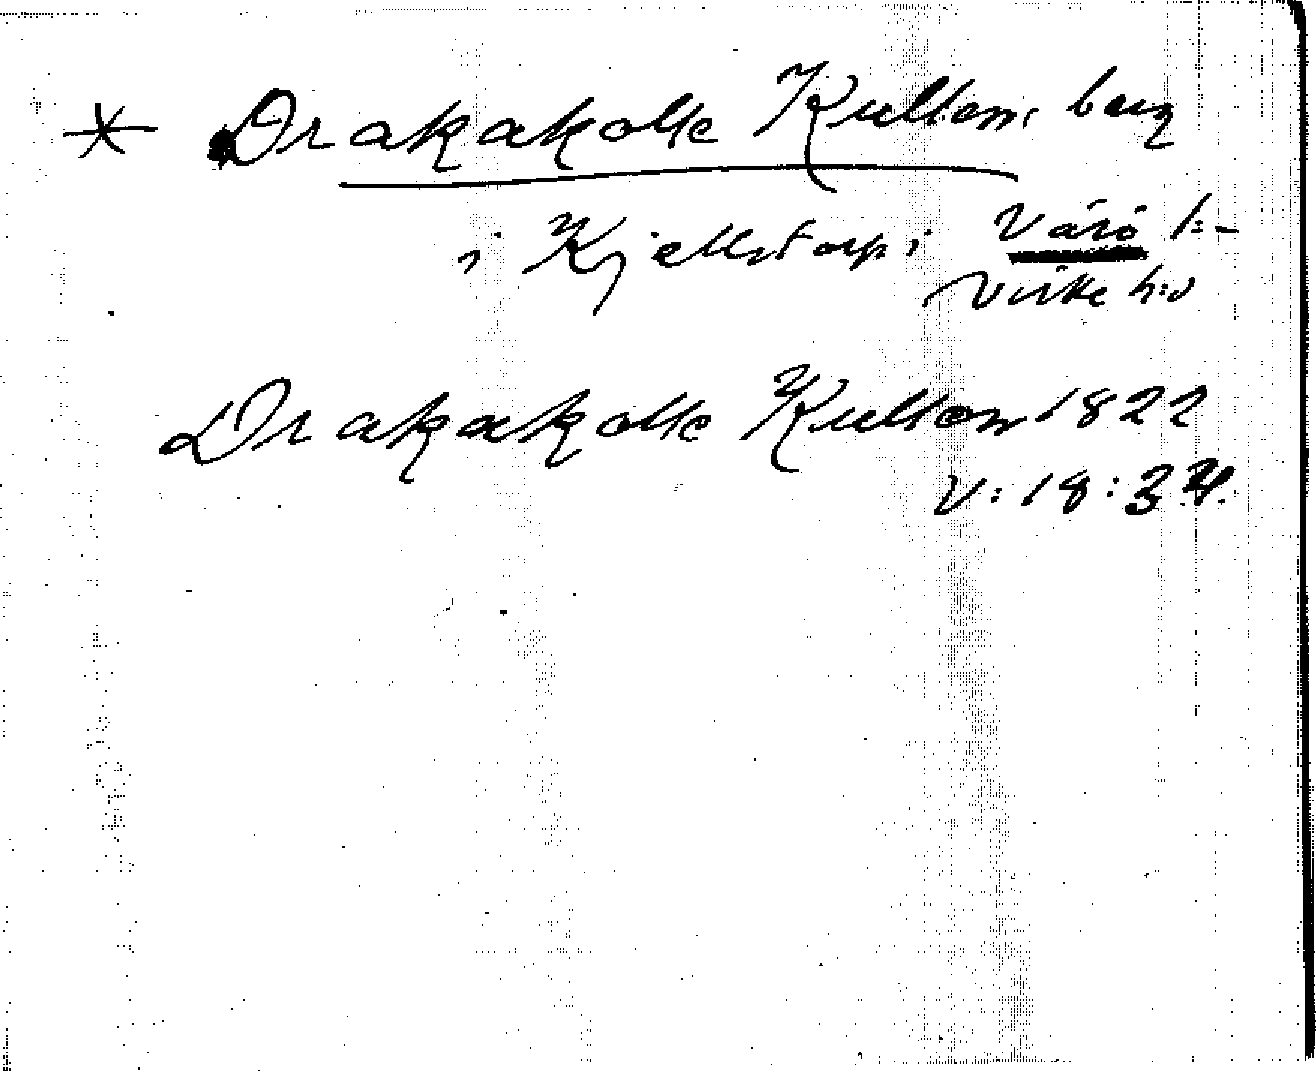 * Drakakolle Kullen, berg
i Kjellstorp i Värö s:n
Viske h:d
Drakakolle Kullen 1822
V: 18: 34.